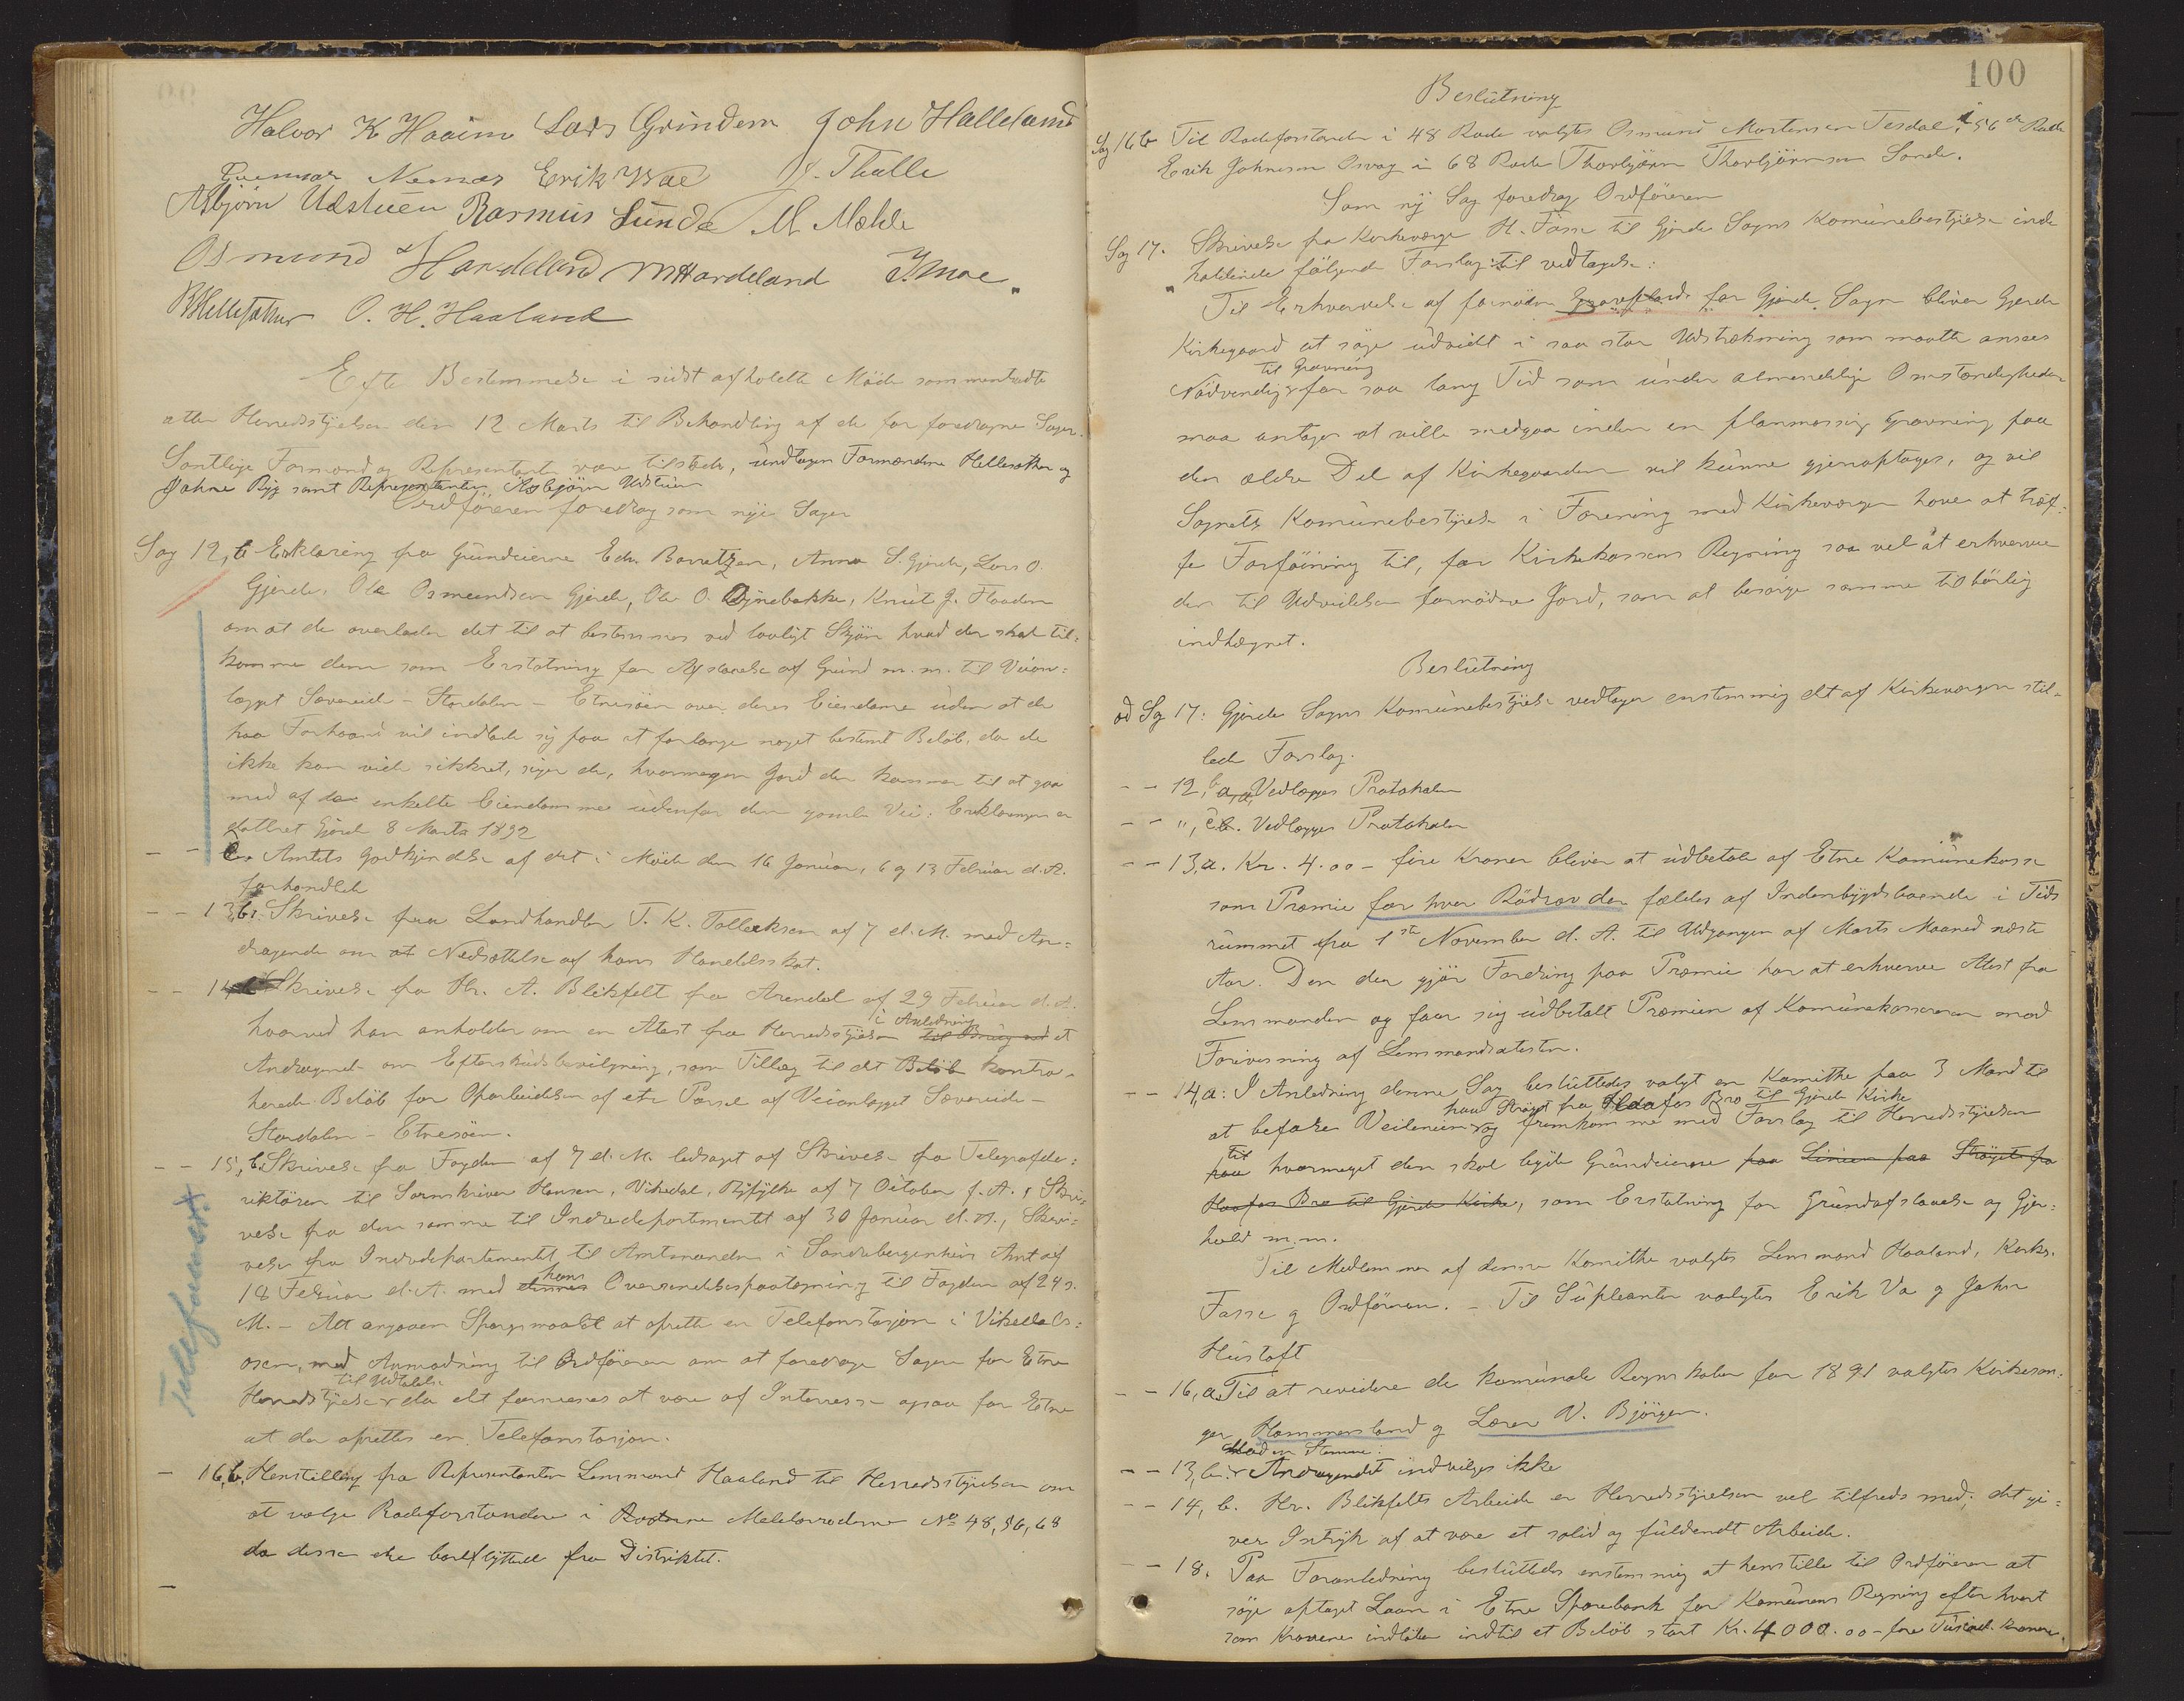 Halvor K Haaim Lars Grindem John Halleland
Gunnar Nernæs Erik Vae J. Thulle
Asbjørn Udstuen Rasmus Sunde M Mæhle
Osmund Hardeland M Hardeland I. Moe
B Hellesøther O. H. Haaland
Efter Bestemmelse i sidst afholdte Møde sammentraadte
atter Herredsstyrelsen den 12 Marts til Behandling af de før foredragne Sager.
Samtlige Formænd og Repræsentanter vare tilstede, undtagen Formændene Hellesøther og
Johne Ryg samt Repræsentanten Asbjørn Udstuen
Ordføreren foredrog som nye Sager
Sag 12, b Erklæring fra Grundeierne Edv. Barretzen, Anna S. Gjerde, Lars O.
Gjerde, Ole Osmundsen Gjerde, Ole O. Dynebakke, Knut J. Flaaden
om at de overlader det til at bestemmes ved lovligt Skjøn hvad der skal til-
komme dem som Erstatning for Afstaaelse af Grund m. m. til Veian-
lægget Sævareide - Stordalen - Etnesøen over deres Eiendomme uden at de
paa Forhaand vil indlade sig paa at forlange noget bestemt Beløb, da de
ikke kan vide sikkert, siger de, hvormegen Jord der kommer til at gaa
med af de enkelte Eiendomme udenfor den gamle Vei: Erklæringen er
datteret Gjerde 8 Marts 1892
- - c. Amtets Godkjendelse af det i Møde den 16 Januar, 6 og 13 Februar d. A.
forhandlede
- - 13, b. Skrivelse fra Landhandler T. K. Tollaksen af 7 d. M. med An-
dragende om at Nedsættelse af hans Handelsskat.
- - 14, b Skrivelse fra Hr. A. Blikfelt fra Arendal af 29 Februar d. A.
hvorved han anholder om en Atest fra Herredsstyrelsen i Anledning til Brug ved et
Andragende om Efterskudsbevilgning, som Tillæg til det Beløb kontra-
herede Beløb for Oparbeidelsen af ete Parsel af Veianlægget Sævareide -
Stordalen - Etnesøen.
- - 15, b. Skrivelse fra Fogden af 7 d. M. ledsaget af Skrivelse fra Telegrafde-
riktøren til Sorenskriver Hansen, Vikedal, Ryfylke af 7 October f. A., Skri-
velse fra den samme til Indredepartementet af 30 Januar d. A., Skri-
velse fra Indredepartementet til Amtmanden i Søndrebergenhus Amt af
18 Februar d. A. med dennes hans Oversendelsespaategning til Fogden af 24 s.
M. - Alt angaaende Spørgsmaalet at oprette en Telefonstasjon i Vikedals-
osen, med Anmodning til Ordføreren om at foredrage Sagen for Etne
Herredsstyrelse til Udtalelse da det formenes at være af Interresse ogsaa for Etne
at der oprettes en Telefonstasjon.
Telefonanst.
- 16, b. Henstilling fra Repræsentanten Lensmand Haaland til Herredsstyrelsen om
at vælge Rodeforstandere i Roderne Matrikelroderne No 48, 56, 68
da disse ere bortflyttede fra Distriktet.
100
Beslutning
Sag 16 b Til Rodeforstander i 48 Rode valgtes Osmund Mortensen Tesdal, i 56de Rode
Erik Johnesen Osvag i 68 Rode Thorbjørn Thorbjørnsen Sande.
Som ny Sag foredrog Ordføreren
Sag 17. Skrivelse fra Kirkeværge H. Fasse til Gjerde Sogns Komunebestyrelse inde-
holdende følgende Forslag til vedtagelse:
Til Erhvervelse af fornøden Gravplads for Gjerde Sogn bliver Gjerde
Kirkegaard at søge udvidet i saa stor Udstrækning som maatte ansees
Nødvendig til Gravning for saa lang Tid som under almindelige Omstændigheder
maa antages at ville medgaa inden en planmæssig Gravning paa
den ældre Del af Kirkegaarden vil kunne gjenoptages, og vil
Sognets Komunebestyrelse i Forening med Kirkeværgen have at træf-
fe Forføining til, for Kirkekassens Regning saa vel at erhverve
den til Udvidelsen fornødne Jord, som at besørge samme tilbørlig
indhegnet.
Beslutning
ad Sag 17: Gjerde Sogns Komunebestyrelse vedtager enstemmig det af Kirkeværgen stil-
lede Forslag.
- - 12, b Vedlægges Protokolen
- - ", c. Vedlægges Protokolen
- - 13, a. Kr. 4.00 - fire Kroner bliver at udbetale af Etne Komunekasse
som Præmie for hver Rødræv der fældes af Indenbygdsboende i Tids
rummet fra 1ste November d. A. til Udgangen af Marts Maaned næste
Aar. Den der gjør Fordring paa Præmie har at erhverve Atest fra
Lensmanden og faar sig udbetalt Præmien af Komunekassereren mod
Forevisning af Lensmandsatesten.
- - 14, a: I Anledning denne Sag besluttedes valgt en Komithe paa 3 Mand til
at befare Veilinien paa Strøget fra Flaafos Bro til Gjerde Kirke og fremkomme med Forslag til Herredsstyrelsen
paa til hvormeget der skal byde Grundeierne paa Linien paa Strøget fra
Flaafos Bro til Gjerde Kirke, som Erstatning for Grundafstaaelse og Gjer-
hold m. m.
Til Medlemmer af denne Komithe valgtes Lensmand Haaland, Kirkev.
Fasse og Ordføreren. - Til Supleanter valgtes Erik Va og John
Hustoft
- - 16, a. Til at revidere de komunale Regnskaber for 1891 valgtes Kirkesan-
ger Hammersland og Lærer N. Bjørgen.
- - 13, b. Mod en Stemme: Andragendet indvilges ikke
- - 14, b. Hr. Blikfelts Arbeide er Herredsstyrelsen vel tilfreds med, det gi-
ver Intryk af at være et solid og fuldendt Arbeide.
- - 18. Paa Foranledning besluttedes enstemmig at henstille til Ordføreren at
søge optaget Laan i Etne Sparebank for Komunens Regning efter hvert
som Kravene indløber indtil et Beløb stort Kr. 4000.00 - fire Tusind Kroner.